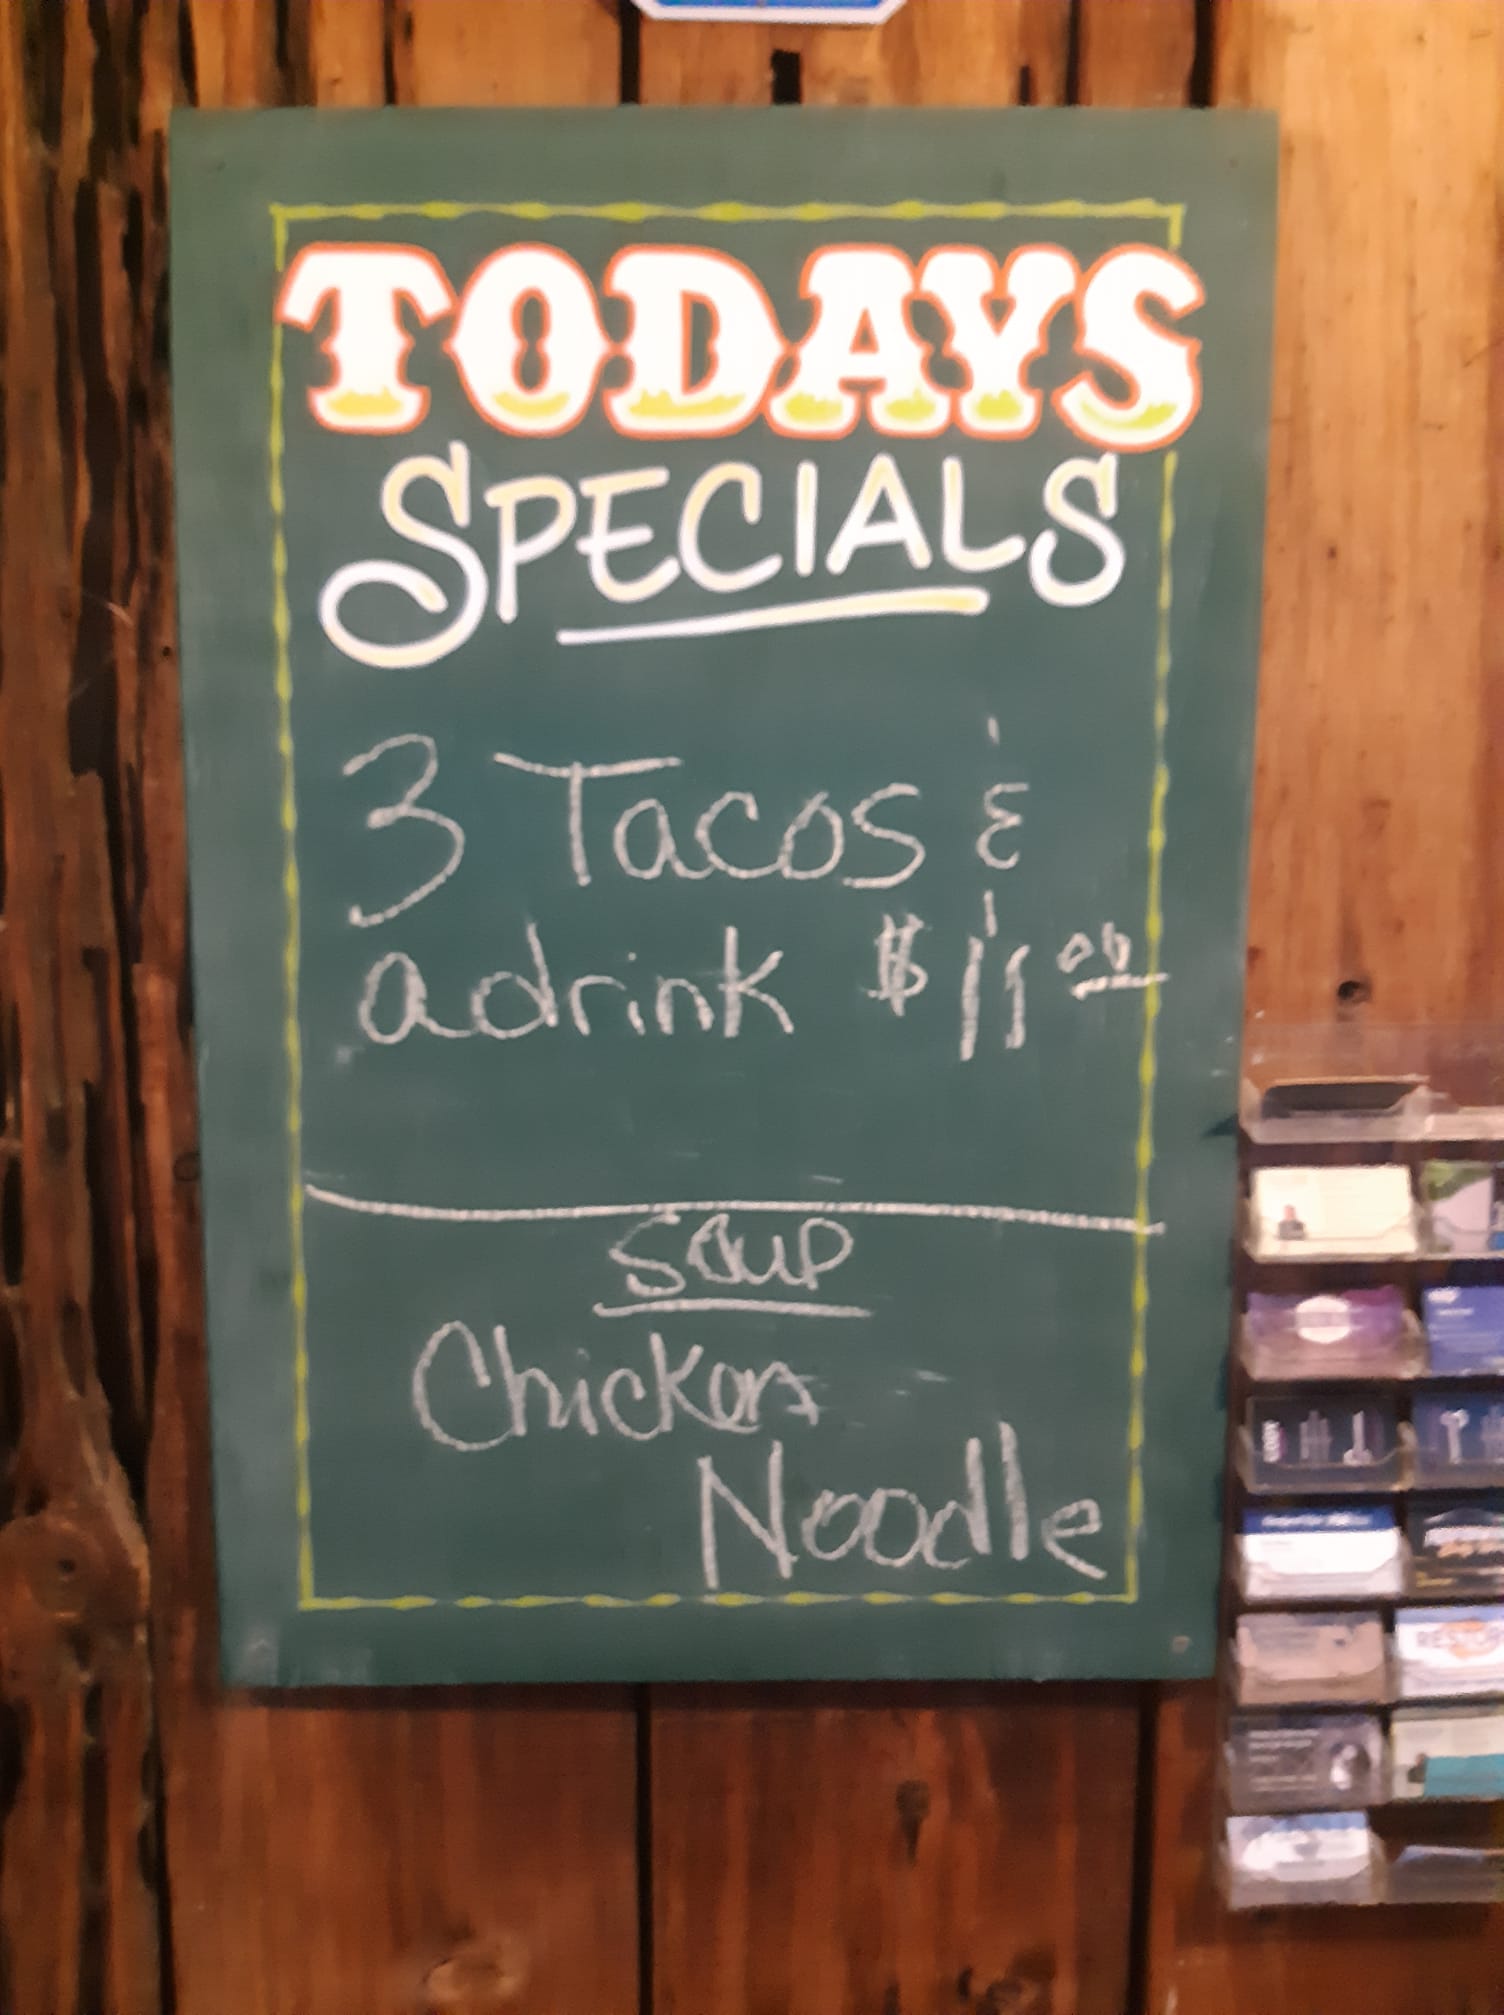 TODAYS
SPECIALS
3 Tacos &
a drink $11.00
Soup
Chicken
Noodle